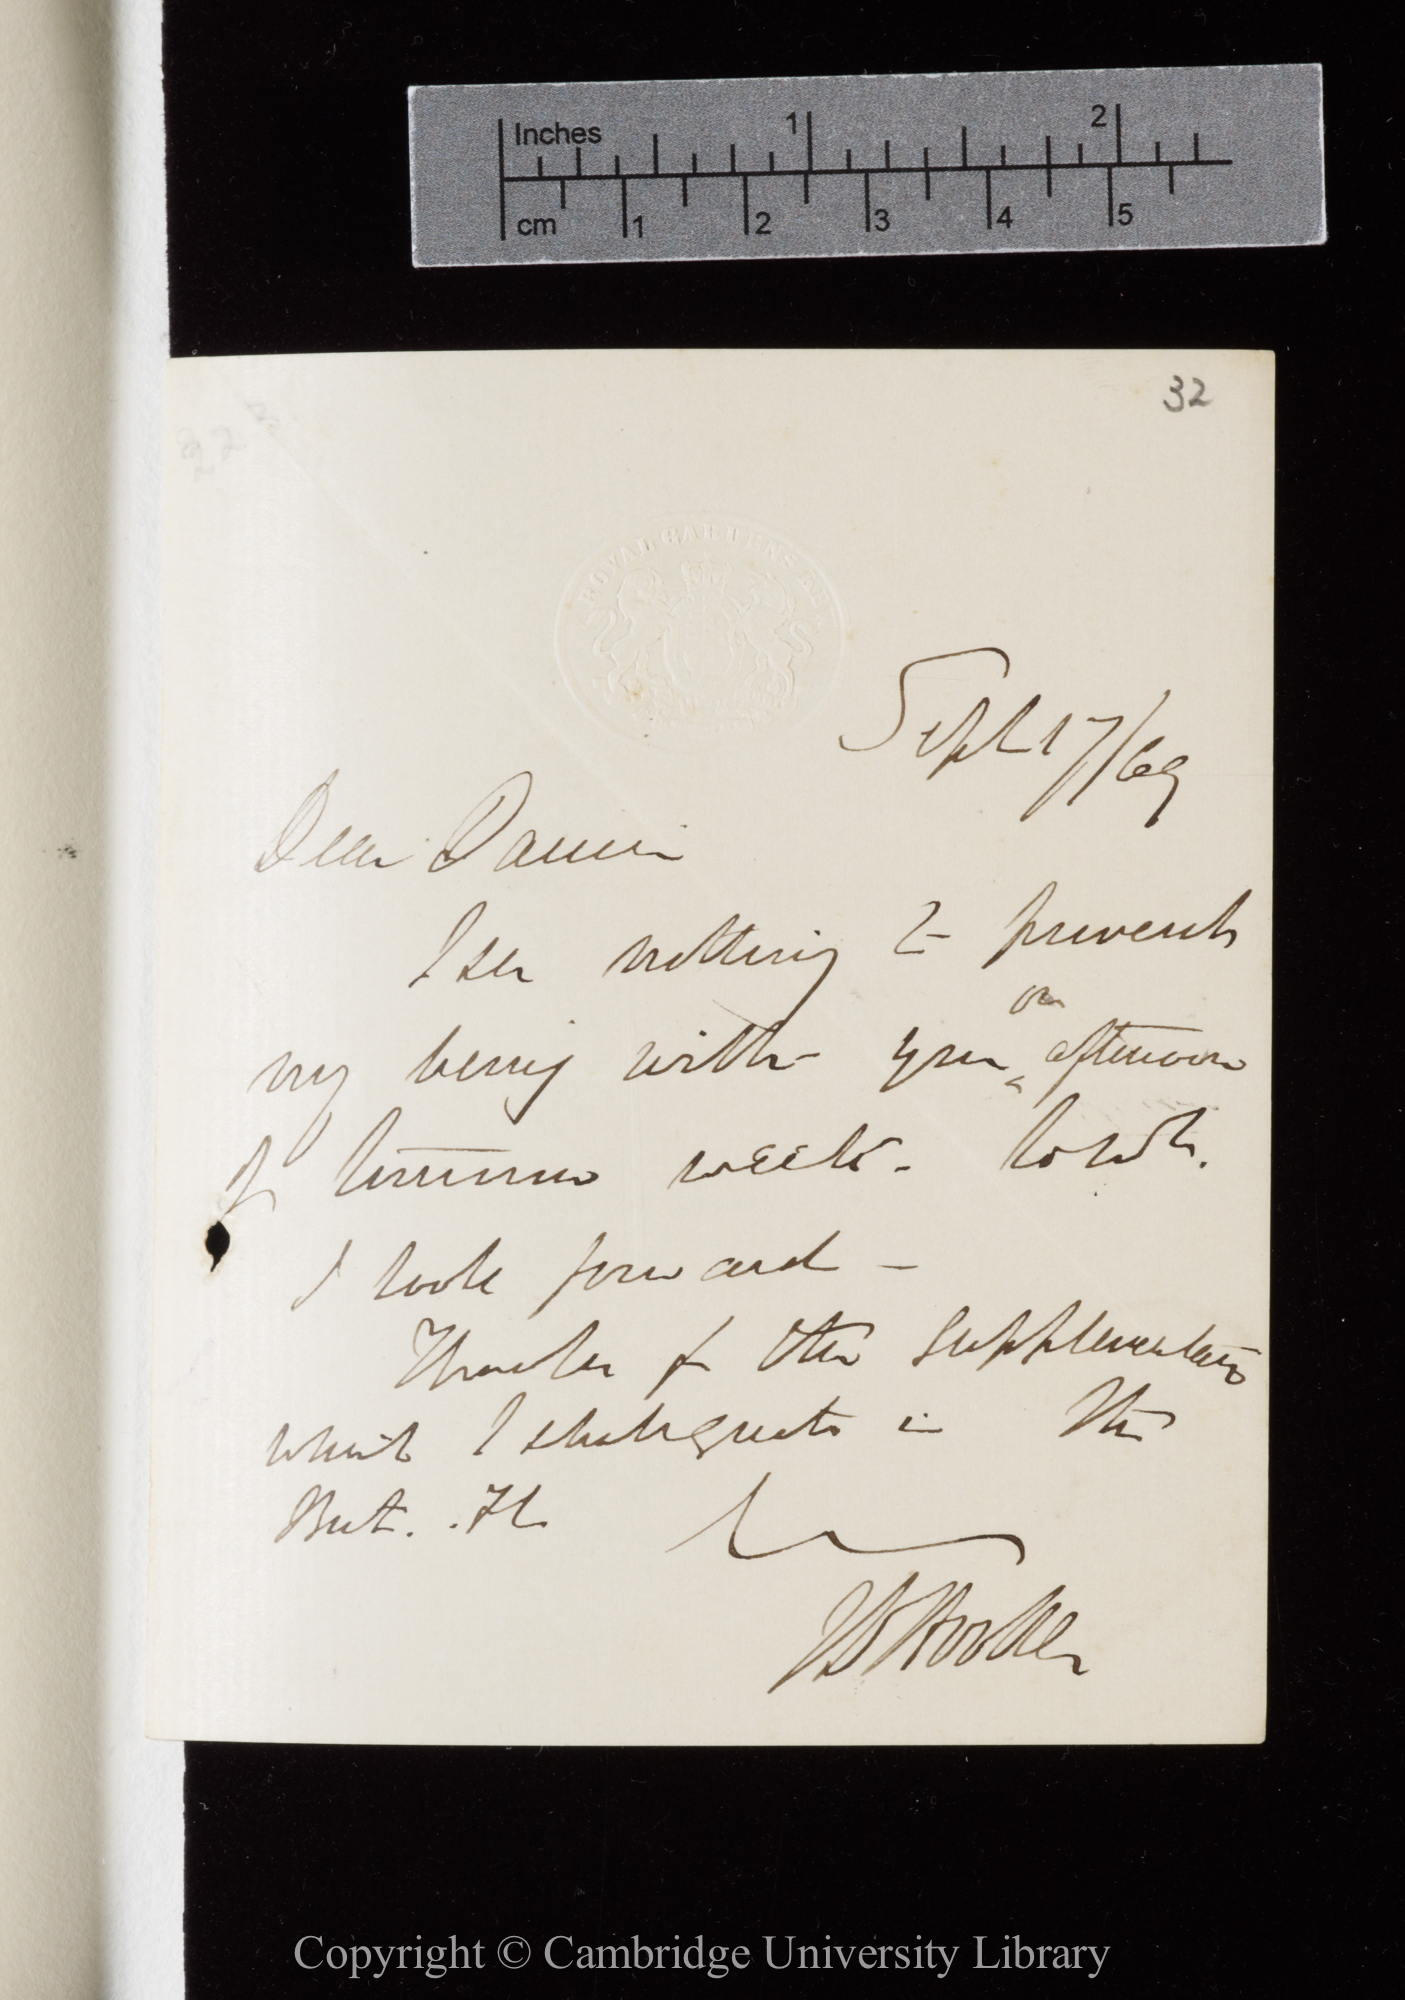 Inches 1 2
cm 1 2 3 4 5
32
ROYAL GARDENS
Sept 17/69
Dear Darwin
I see nothing to prevent
my being with you on afternoon
of tomorrow week.
I look forward —
Thanks for the supplementary
which I shall quote in the
J D Hooker
Copyright © Cambridge University Library